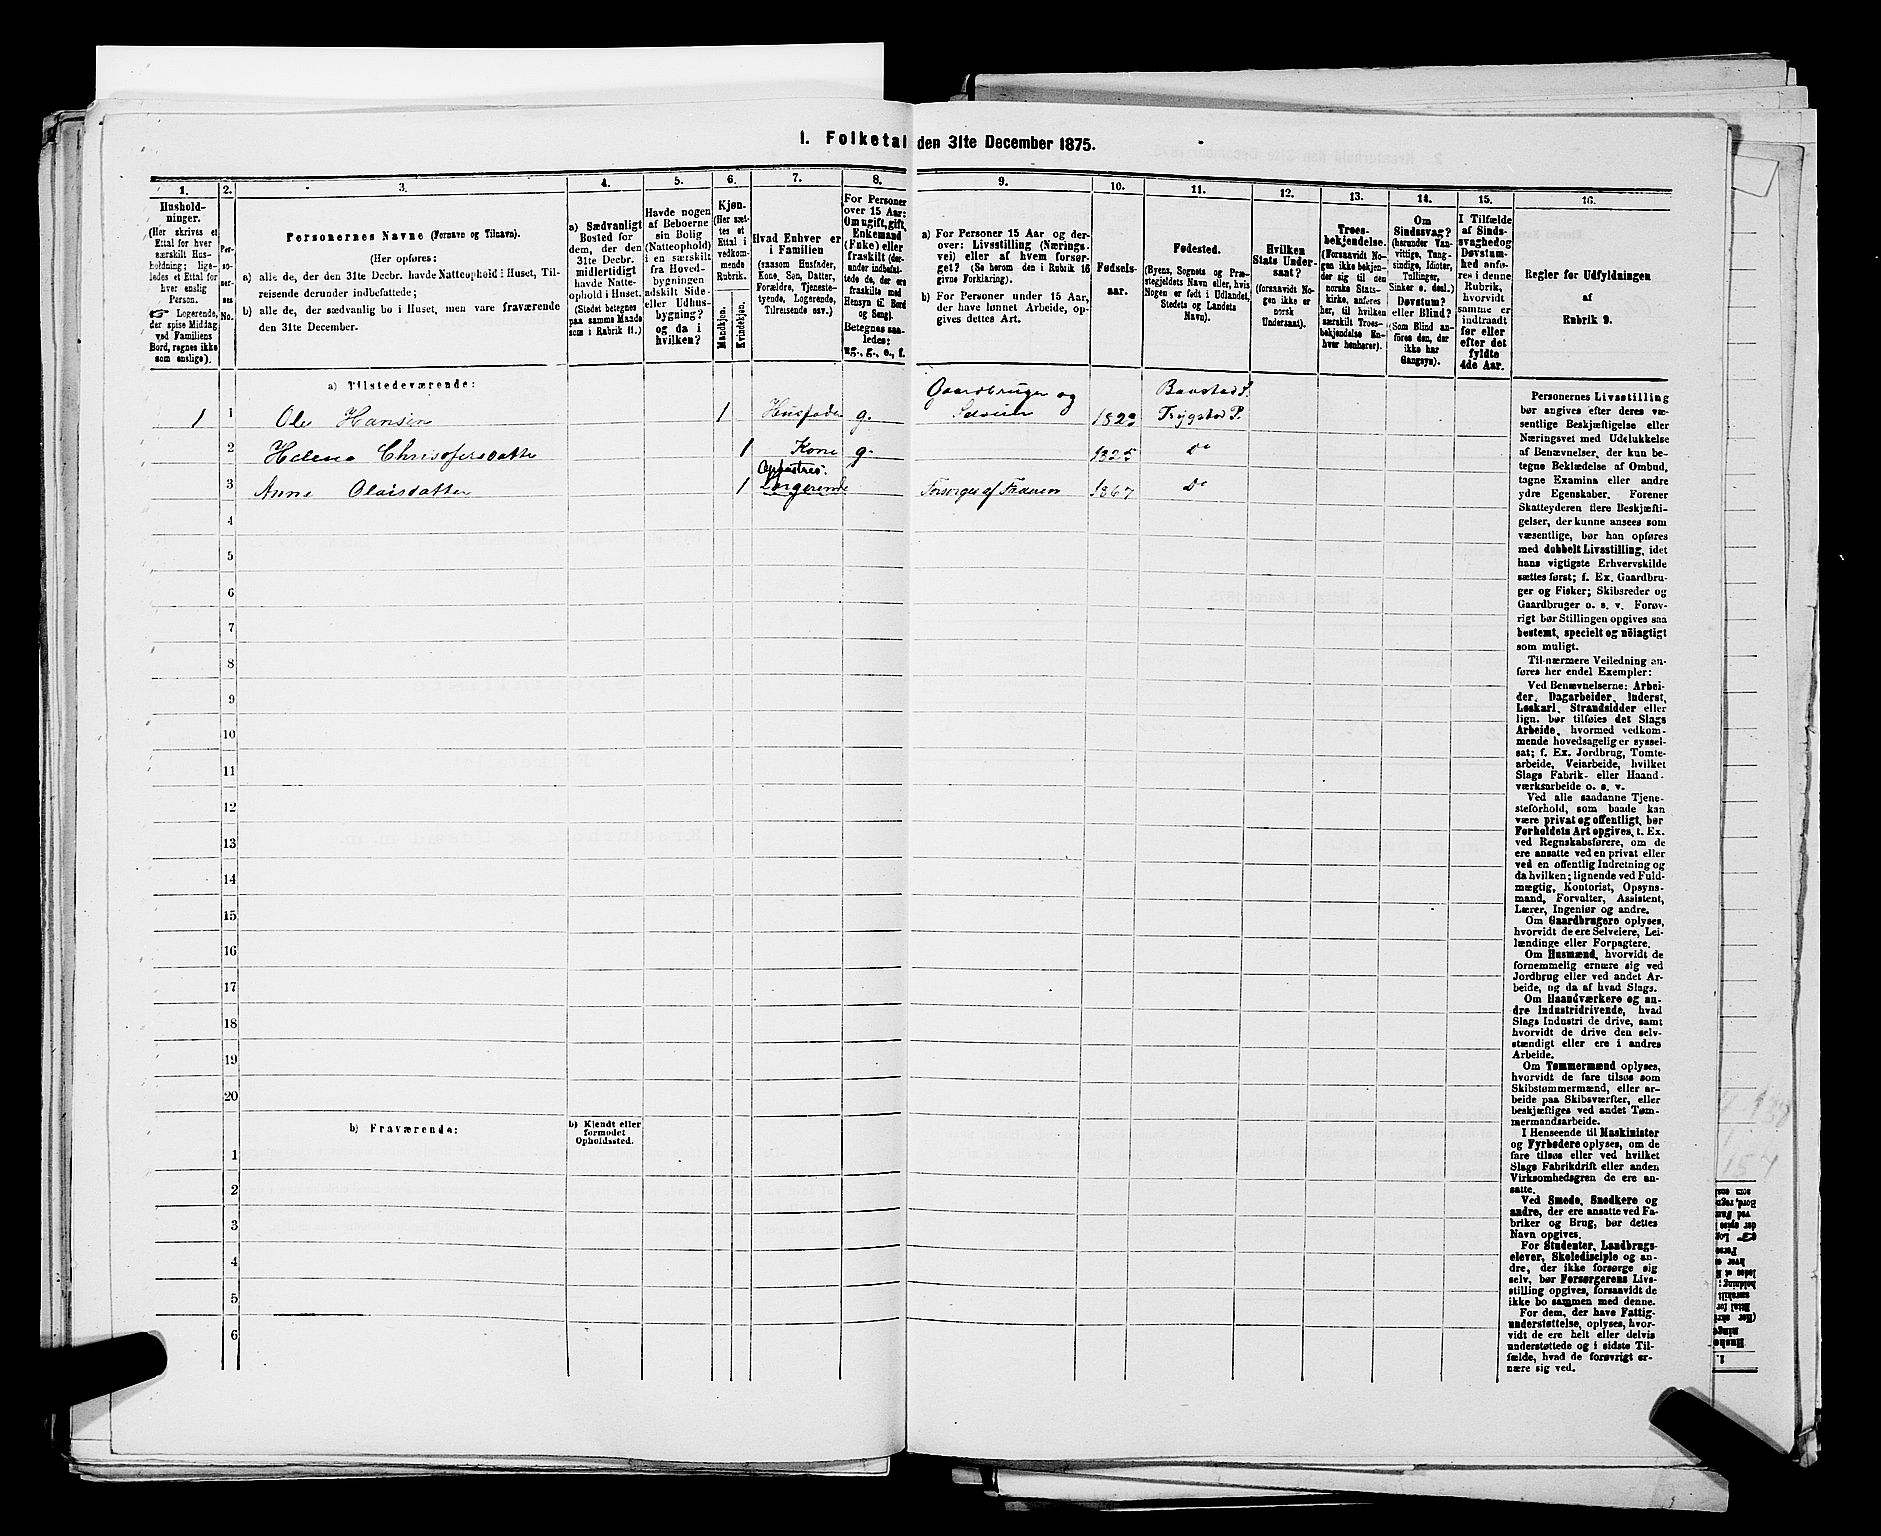 1. Folketal den 31te December 1875.
1.
Hushold-
ninger.
(Her skrives et
Ettal for hver
særskilt Hus-
holdning; lige-
ledes et Ettal for
hver enslig
Person.
☞ Logerende,
der spise Middag
ved Familiens
Bord, regnes ikke
som enslige).
2.
Per-
so-
ner-
nes
No.
3.
Personernes Navne (Fornavn og Tilnavn).
(Her opføres:
a) alle de, der den 31te Decbr. havde Natteophold i Huset, Til-
reisende derunder indbefattede;
b) alle de, der sædvanlig bo i Huset, men vare fraværende
den 31te December.
4.
a) Sædvanligt
Bosted for
dem, der den
31te Decbr.
midlertidigt
havde Natte-
ophold i Huset.
(Stedet betegnes
paa samme Maade
som i Rubrik 11.)
5.
Havde nogen
af Beboerne
sin Bolig
(Natteophold)
i en særskilt
fra Hoved-
bygningen
adskilt Side-
eller Udhus-
bygning?
og da i
hvilken?
6.
Kjøn.
(Her sæt-
tes et
Ettal i
vedkom-
mende
Rubrik.
Mandkjøn.
Kvindekjøn.
7.
Hvad Enhver er
i Familien
(saasom Husfader,
Kone, Søn, Datter,
Forældre, Tjeneste-
tyende, Logerende,
Tilreisende osv.)
8.
For Personer
over 15 Aar:
Om ugift, gift,
Enkemand
(Enke) eller
fraskilt (der-
under indbefat-
tede de, der ere
fraskilte med
Hensyn til Bord
og Seng).
Betegnes saa-
ledes:
ug., g., e., f.
9.
a) For Personer 15 Aar og der-
over: Livsstilling (Nærings-
vei) eller af hvem forsør-
get? (Se herom den i Rubrik 16
givne Forklaring).
b) For Personer under 15 Aar,
der have lønnet Arbeide, op-
gives dettes Art.
10.
Fødsels-
aar.
11.
Fødested.
(Byens, Sognets og Præ-
stegjeldets Navn eller, hvis
Nogen er født i Udlandet,
Stedets og Landets
Navn).
12.
Hvilken
Stats Under-
saat?
(forsaavidt No-
gen ikke er
norsk
Undersaat).
13.
Troes-
bekjendelse.
(Forsaavidt No-
gen ikke bekjen-
der sig til den
norske Stats-
kirke, anføres
her, til hvilken
særskilt Troes-
bekjendelse En-
hver henhører).
14.
Om
Sindssvag?
(herunder Van-
vittige, Tung-
sindige, Idioter,
Tullinger,
Sinker o. desl.)
Døvstum?
eller Blind?
(Som Blind an-
føres den, der
ikke har
Gangsyn).
15.
I Tilfælde
af Sinds-
svaghed og
Døvstum-
hed anfø-
res i denne
Rubrik,
hvorvidt
samme er
indtraadt
før eller
efter det
fyldte
4de Aar.
16.
Regler for Udfyldningen
af
Rubrik 9.
a) Tilstedeværende:
Gaardbruger og Baastad S.
1 1 Ole Hansen 1 Husfader g. Selveier 1823 Trygstad P.
2 Helene Christofersdatter 1 Kone g. 1825 Do
3 Anne Olaisdatter 1 Logerende Forsørges af Faderen 1867 Do
4
5
6
7
8
9
10
11
12
13
14
15
16
17
18
19
20
b) Fraværende:
b) Kjendt eller
formodet
Opholdssted.
1
2
3
4
5
6
Personernes Livsstilling
bør angives efter deres væ-
sentlige Beskjæftigelse eller
Næringsvei med Udelukkelse
af Benævnelser, der kun be-
tegne Beklædelse af Ombud,
tagne Examina eller andre
ydre Egenskaber. Forener
Skatteyderen flere Beskjæfti-
gelser, der kunne ansees som
væsentlige, bør han opføres
med dobbelt Livsstilling, idet
hans vigtigste Erhvervskilde
sættes først; f. Ex. Gaardbru-
ger og Fisker; Skibsreder og
Gaardbruger o. s. v. Forøv-
rigt bør Stillingen opgives saa
bestemt, specielt og nøiagtigt
som muligt.
Til nærmere Veiledning an-
føres her endel Exempler:
Ved Benævnelserne: Arbei-
der, Dagarbeider, Inderst,
Løskarl, Strandsidder eller
lign. bør tilføies det Slags
Arbeide, hvormed vedkom-
mende hovedsagelig er syssel-
sat; f. Ex. Jordbrug, Tomte-
arbeide, Veiarbeide, hvilket
Slags Fabrik- eller Haand-
værksarbeide o. s. v.
Ved alle saadanne Tjene-
steforhold, som baade kan
være privat og offentligt, bør
Forholdets Art opgives, t. Ex.
ved Regnskabsførere, om de
ere ansatte ved en privat eller
ved en offentlig Indretning og
da hvilken; lignende ved Fuld-
mægtig, Kontorist, Opsyns-
mand, Forvalter, Assistent,
Lærer, Ingeniør og andre.
Om Gaardbrugere oplyses,
hvorvidt de ere Selveiere, Lei-
lændinge eller Forpagtere.
Om Husmænd, hvorvidt de
fornemmelig ernære sig ved
Jordbrug eller ved andet Ar-
beide, og da af hvad Slags.
Om Haandværkere og an-
dre Industridrivende, hvad
Slags Industri de drive, samt
hvorvidt de drive den selv-
stændigt eller ere i andres
Arbeide.
Om Tømmermænd oplyses,
hvorvidt de fare tilsøs som
Skibstømmermænd, eller ar-
beide paa Skibsværfter, eller
beskjæftiges ved andet Tøm-
mermandsarbeide.
I Henseende til Maskinister
og Fyrbødere oplyses, om de
fare tilsøs eller ved hvilket
Slags Fabrikdrift eller anden
Virksomhedsgren de ere an-
satte.
Ved Smede, Snedkere og
andre, der ere ansatte ved Fa-
briker og Brug, bør dettes
Navn opgives.
For Studenter, Landbrugs-
elever, Skoledisciple og an-
dre, der ikke forsørge sig
selv, bør Forsørgerens Livs-
stilling opgives, forsaavidt de
ikke bo sammen med denne.
For dem, der have Fattig-
understøttelse, oplyses, hvor-
vidt de ere helt eller delvis
understøttede og i sidste Til-
fælde, hvad de forøvrigt er-
nære sig ved.